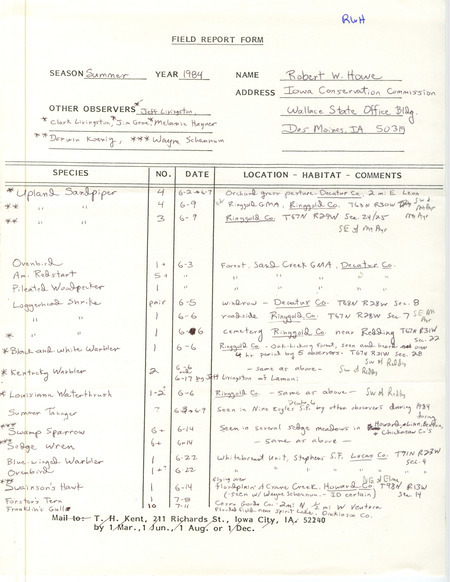 RWH
FIELD REPORT FORM
SEASON Summer YEAR 1984 NAME Robert W. Howe
ADDRESS Iowa Conservation Commission
OTHER OBSERVERS * Jeff Livingston, Wallace State Office Bldg.
* Clark Livingston, Jim Grove, Melanie Hayner Des Moines, IA 50319
** Darwin Koenig, *** Wayne Schennum
SPECIES NO. DATE LOCATION - HABITAT - COMMENTS
* Upland Sandpiper 4 6-2 Orchard grass pasture - Decatur Co. 2 mi E Leon
** " " 4 6-9 Ringgold GMA, Ringgold Co. T67N R30W
** " " 3 6-9 Ringgold Co. T67N R29W Sec. 24/25
SE of Mt Ayr
Ovenbird 1+ 6-3 Forest, Sand Creek GMA, Decatur Co.
Am. Redstart 5+ " " "
Pileated Woodpecker 1 " " "
Loggerhead Shrike pair 6-5 windrow - Decatur Co. T68N R28W Sec. 8
" " 1 6-6 roadside Ringgold Co. T67N R28W Sec 7 SE Mt Ayr
* " " 1 6-6 cemetery Ringgold Co. near Redding T67N R31W Sec. 22
* Black and white Warbler 1 6-6 Ringgold Co. - Oak-hickory forest, seen and heard over
4 hr period by 5 observers. T67N R31W Sec. 28
* Kentucky Warbler 2 6-6 - same as above - SW of Redding
6-17 by Jeff Livingston at Lamoni
* Louisiana Waterthrush 1-2 6-6 Ringgold Co. - same as above - SW of Redding
Summer Tanager ? Seen in Nine Eagles S.P. by other observers during 1984
*** Swamp Sparrow 6+ 6-14 Seen in several sedge meadows in Howard, Linn, & Chickasaw Co's
*** Sedge Wren 6+ 6-14 - same as above -
Blue-winged Warbler 1 6-22 Whitebreast Unit, Stephens S.F. Lucas Co. T71N R23W Sec. 4
Ovenbird 1+ 6-22 " " " "
*** Swainson's Hawk 1 6-14 flying over floodplain of Crane Creek, Howard Co. T98N R13W Sec. 14
(seen w/ Wayne Schennum - ID certain)
Forster's Tern 1 7-8 Cerro Gordo Co. - 2 mi N 1/2 mi W Ventura
Franklin's Gull 10 7-11 Plowed field near Spirit Lake, Dickinson Co.
Mail to: T. H. Kent, 211 Richards St., Iowa City, IA. 52240
by 1 Mar., 1 Jun., 1 Aug. or 1 Dec.